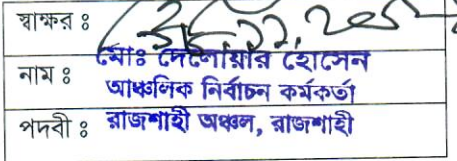 স্বাক্ষর ঃ
নাম ঃ মোঃ দেলোয়ার হোসেন
আঞ্চলিক নির্বাচন কর্মকর্তা
পদবী ঃ রাজশাহী অঞ্চল, রাজশাহী